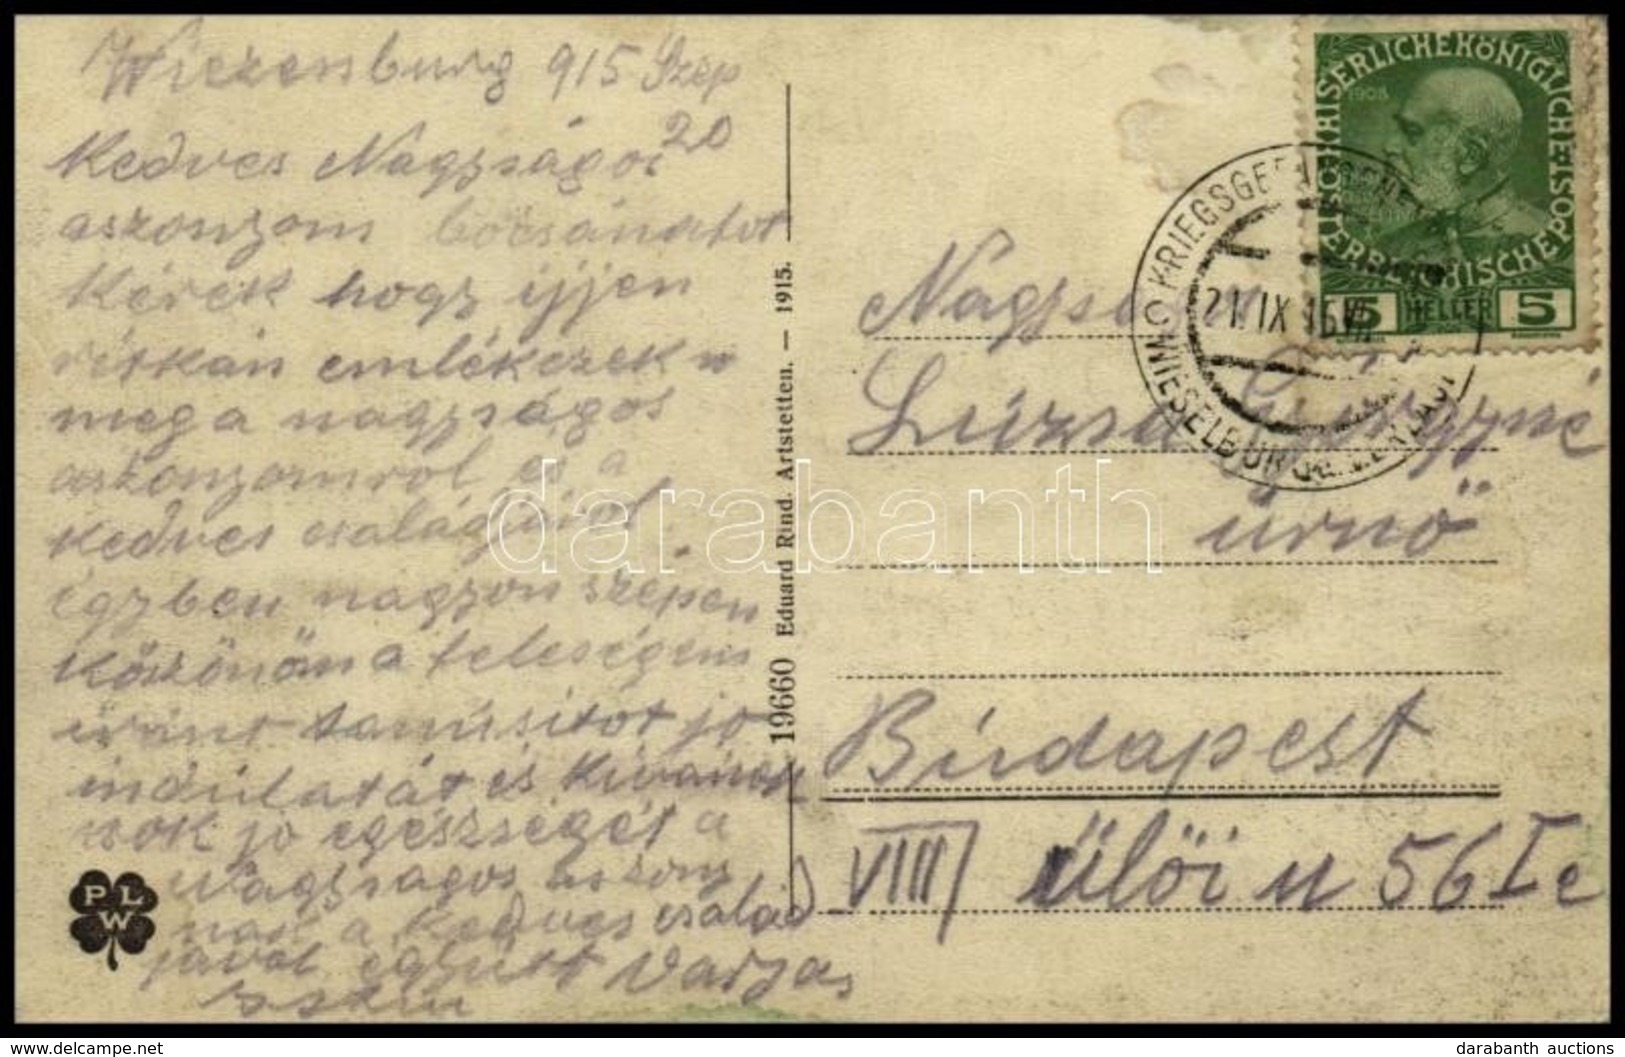 Wiezenburg 915 Szep
20
Kedves Nagyságos
aszonyom bocsánatot
kérek hogy ijjen
ritkán emlékezek
meg a nagyságos
aszonyomrol es a
kedves családjárol
égyben nagyon szépen
köszönöm a feleségem
iránt tanusitot jo
indulatát és kivánok
sok jo egészségét a
Nagyságos aszony
nak a kedves család
jával együtt Varjas
P L
W
19660 Eduard Rind. Artstetten. — 1915.
KAISERLICHE KÖNIGLICHE ÖSTERREICHISCHE POST
1908
5 HELLER 5
KRIEGSGEFANGENEN
WIESELBURG
21 IX 15
Nagyságos
Luzsa Györgyné
úrnö
Budapest
VIII ülöi u 56 I e
darabanth
darabanth auctions